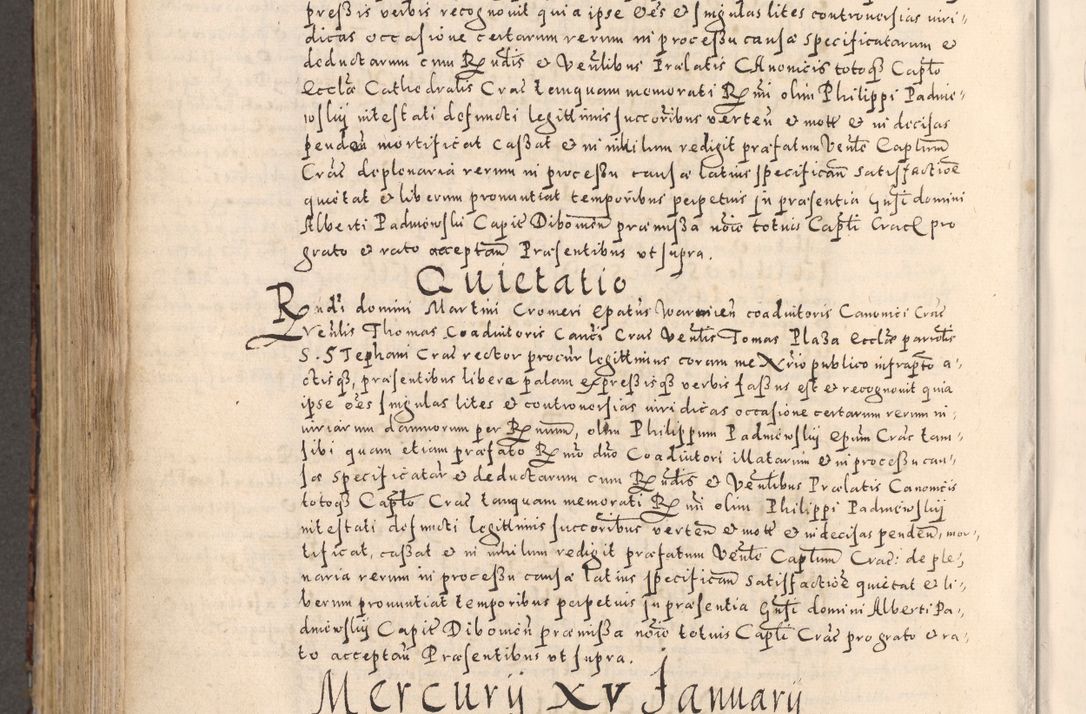 preßis verbis recognovit quia ipse oēs et singulas lites controversias iuri-
dicas occasione certarum rerum in processu causæ specificatarum et
deductarum cum Rndis et Venlibus Prælatis Canonicis totoq3 Caplo
Ecclæ Cathedralis Crac tamquam memorati Rmi olim Philippi Padnie-
wskij intestati defuncti legittimis successoribus verten et mott et indecisas
penden mortificat cassat et in nihilum redigit præfatum Venle Caplum
Crac deplenaria rerum in processu causæ latius specifican satisfactioe
quietat et liberum pronuntiat temporibus perpetuis in præsentia Gnsi domini
Alberti Padniewski Capit Dibomen præmissa noie totius Capli Crac pro
grato et rato acceptan Præsentibus ut supra.
Quietatio
Rndi domini Martini Cromeri Epatus Warmien coadiutoris Canonici Crac
Venlis Thomas Coadiutoris Canci Crac Venlis Tomas Plaza Ecclæ parialis
S. Stephani Crac rector procur legittimus coram me Nrio publico infrapto a-
ctisq3, præsentibus libere palam expressisq3 verbis fassus est et recognovit quia
ipse oēs singulas lites et controversias iuridicas occasione certarum rerum in-
iuriarum damnorum per Rmum, olim Philippum Padniewskij Epum Crac tam
sibi quam etiam præfato Rmo dno Coadiutori illatarum et in processu cau-
sæ specificatar et deductarum cum Rndis et Venlibus Prælatis Canonicis
totoq3 Caplo Crac tanquam memorati Rmi olim Philippi Padniewskij
intestati defuncti legittimis successoribus verten et mott et indecisas penden, mor-
tificat, cassat et in nihilum redigit præfatum Venle Caplum Crac: de ple-
naria rerum in processu causæ latius specifican satisfactioe quietat et li-
berum pronuntiat temporibus perpetuis in præsentia Gnsi domini Alberti Pa-
dniewskij Capit Dibomen præmissa noie totius Capli Crac pro grato et ra-
to acceptan Præsentibus ut supra.
Mercurij XV Januarij